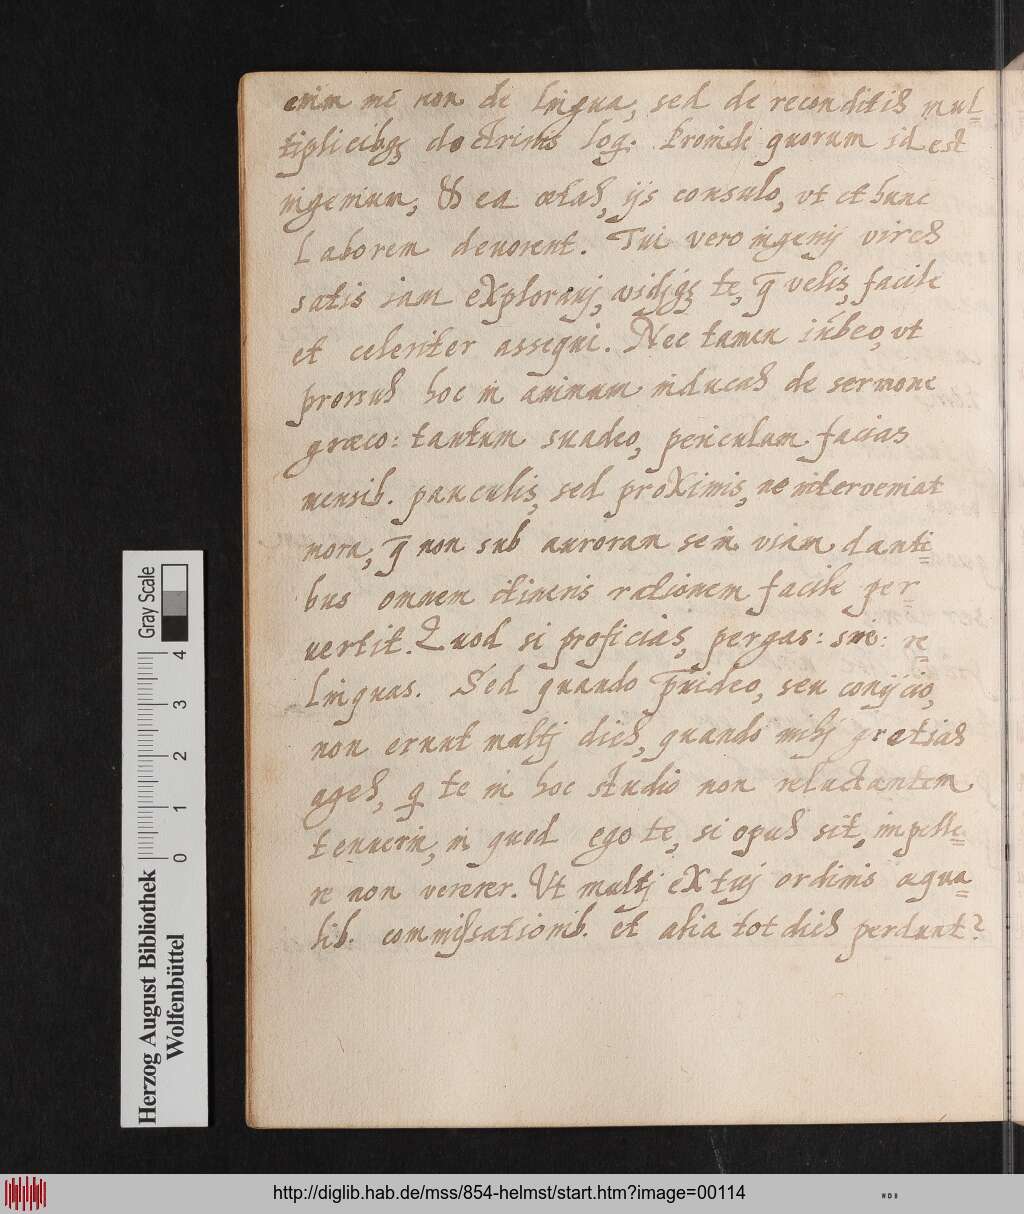 enim mē non de lingua, sed de reconditis mul=
tiplicibq; doctrinis log. Proinde quorum id est
ingenium, & ea ætas, ijs consulo, vt et hunc
Laborem deuorent. Tui vero ingenij vires
satis iam exploraui, vidiq; te, q̄ velis, facile
et celeriter assequi. Nec tamen iubeo, vt
prorsus hoc in animum inducas de sermone
græco: tantum suadeo, periculum facias
mensib. pauculis, sed proximis, ne interveniat
mora, q̄ non sub auroram se in viam danti=
bus omnem itineris rationem facile per=
vertit. Quod si proficias, pergas: sin: re=
linquas. Sed quando p̄uideo, seu conijcio,
non erunt multj dies, quando mihj gratias
ages, q te in hoc studio non reluctantem
tenuerin, in quod ego te, si opus sit, impelle=
re non vererer. Vt multj ex tuj ordinis aqua=
lib. commissationib. et alia tot dies perdunt?
Herzog August Bibliothek
Wolfenbüttel
Gray Scale
0 1 2 3 4
http://diglib.hab.de/mss/854-helmst/start.htm?image=00114
WDB